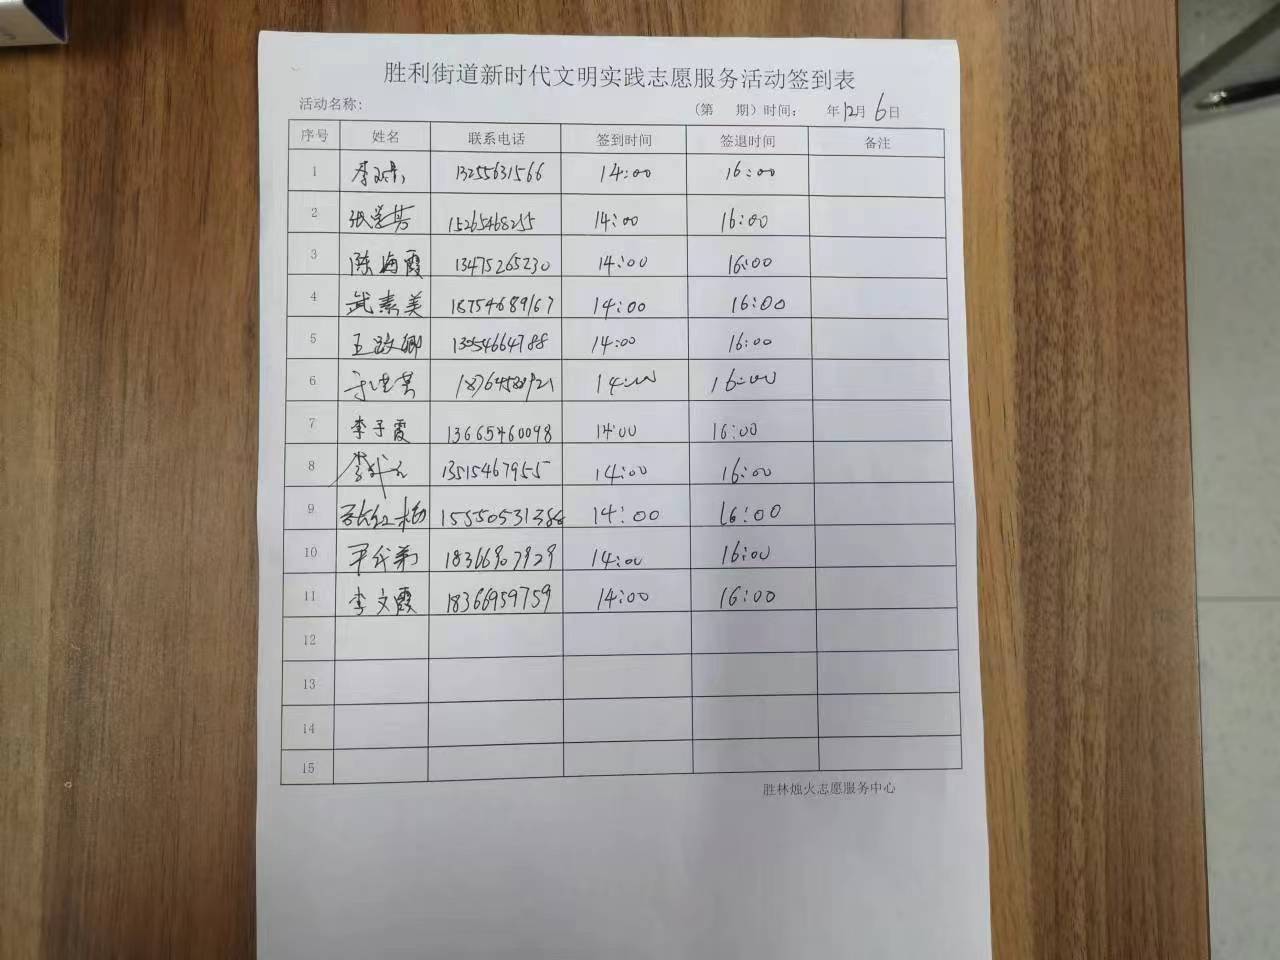 胜利街道新时代文明实践志愿服务活动签到表
活动名称: (第 期) 时间: 年12月6日
序号 姓名 联系电话 签到时间 签退时间 备注
1 13255631566 14:00 16:00
2 15265468255 14:00 16:00
3 陈海霞 13475265230 14:00 16:00
4 武素美 18754689167 14:00 16:00
5 13054664788 14:00 16:00
6 14:00 16:00
7 李子霞 13665460098 14:00 16:00
8 13515467955 14:00 16:00
9 张红梅 15550531388 14:00 16:00
10 18366907929 14:00 16:00
11 李文霞 18366959759 14:00 16:00
12
13
14
15
胜林烛火志愿服务中心